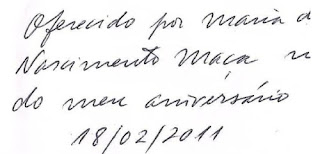 Oferecido por Maria d
Nascimento Maça n
do meu aniversário
18/02/2011